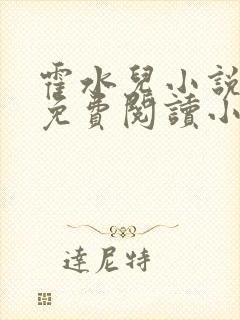 霍水兒小說
免費閱讀小
達尼特